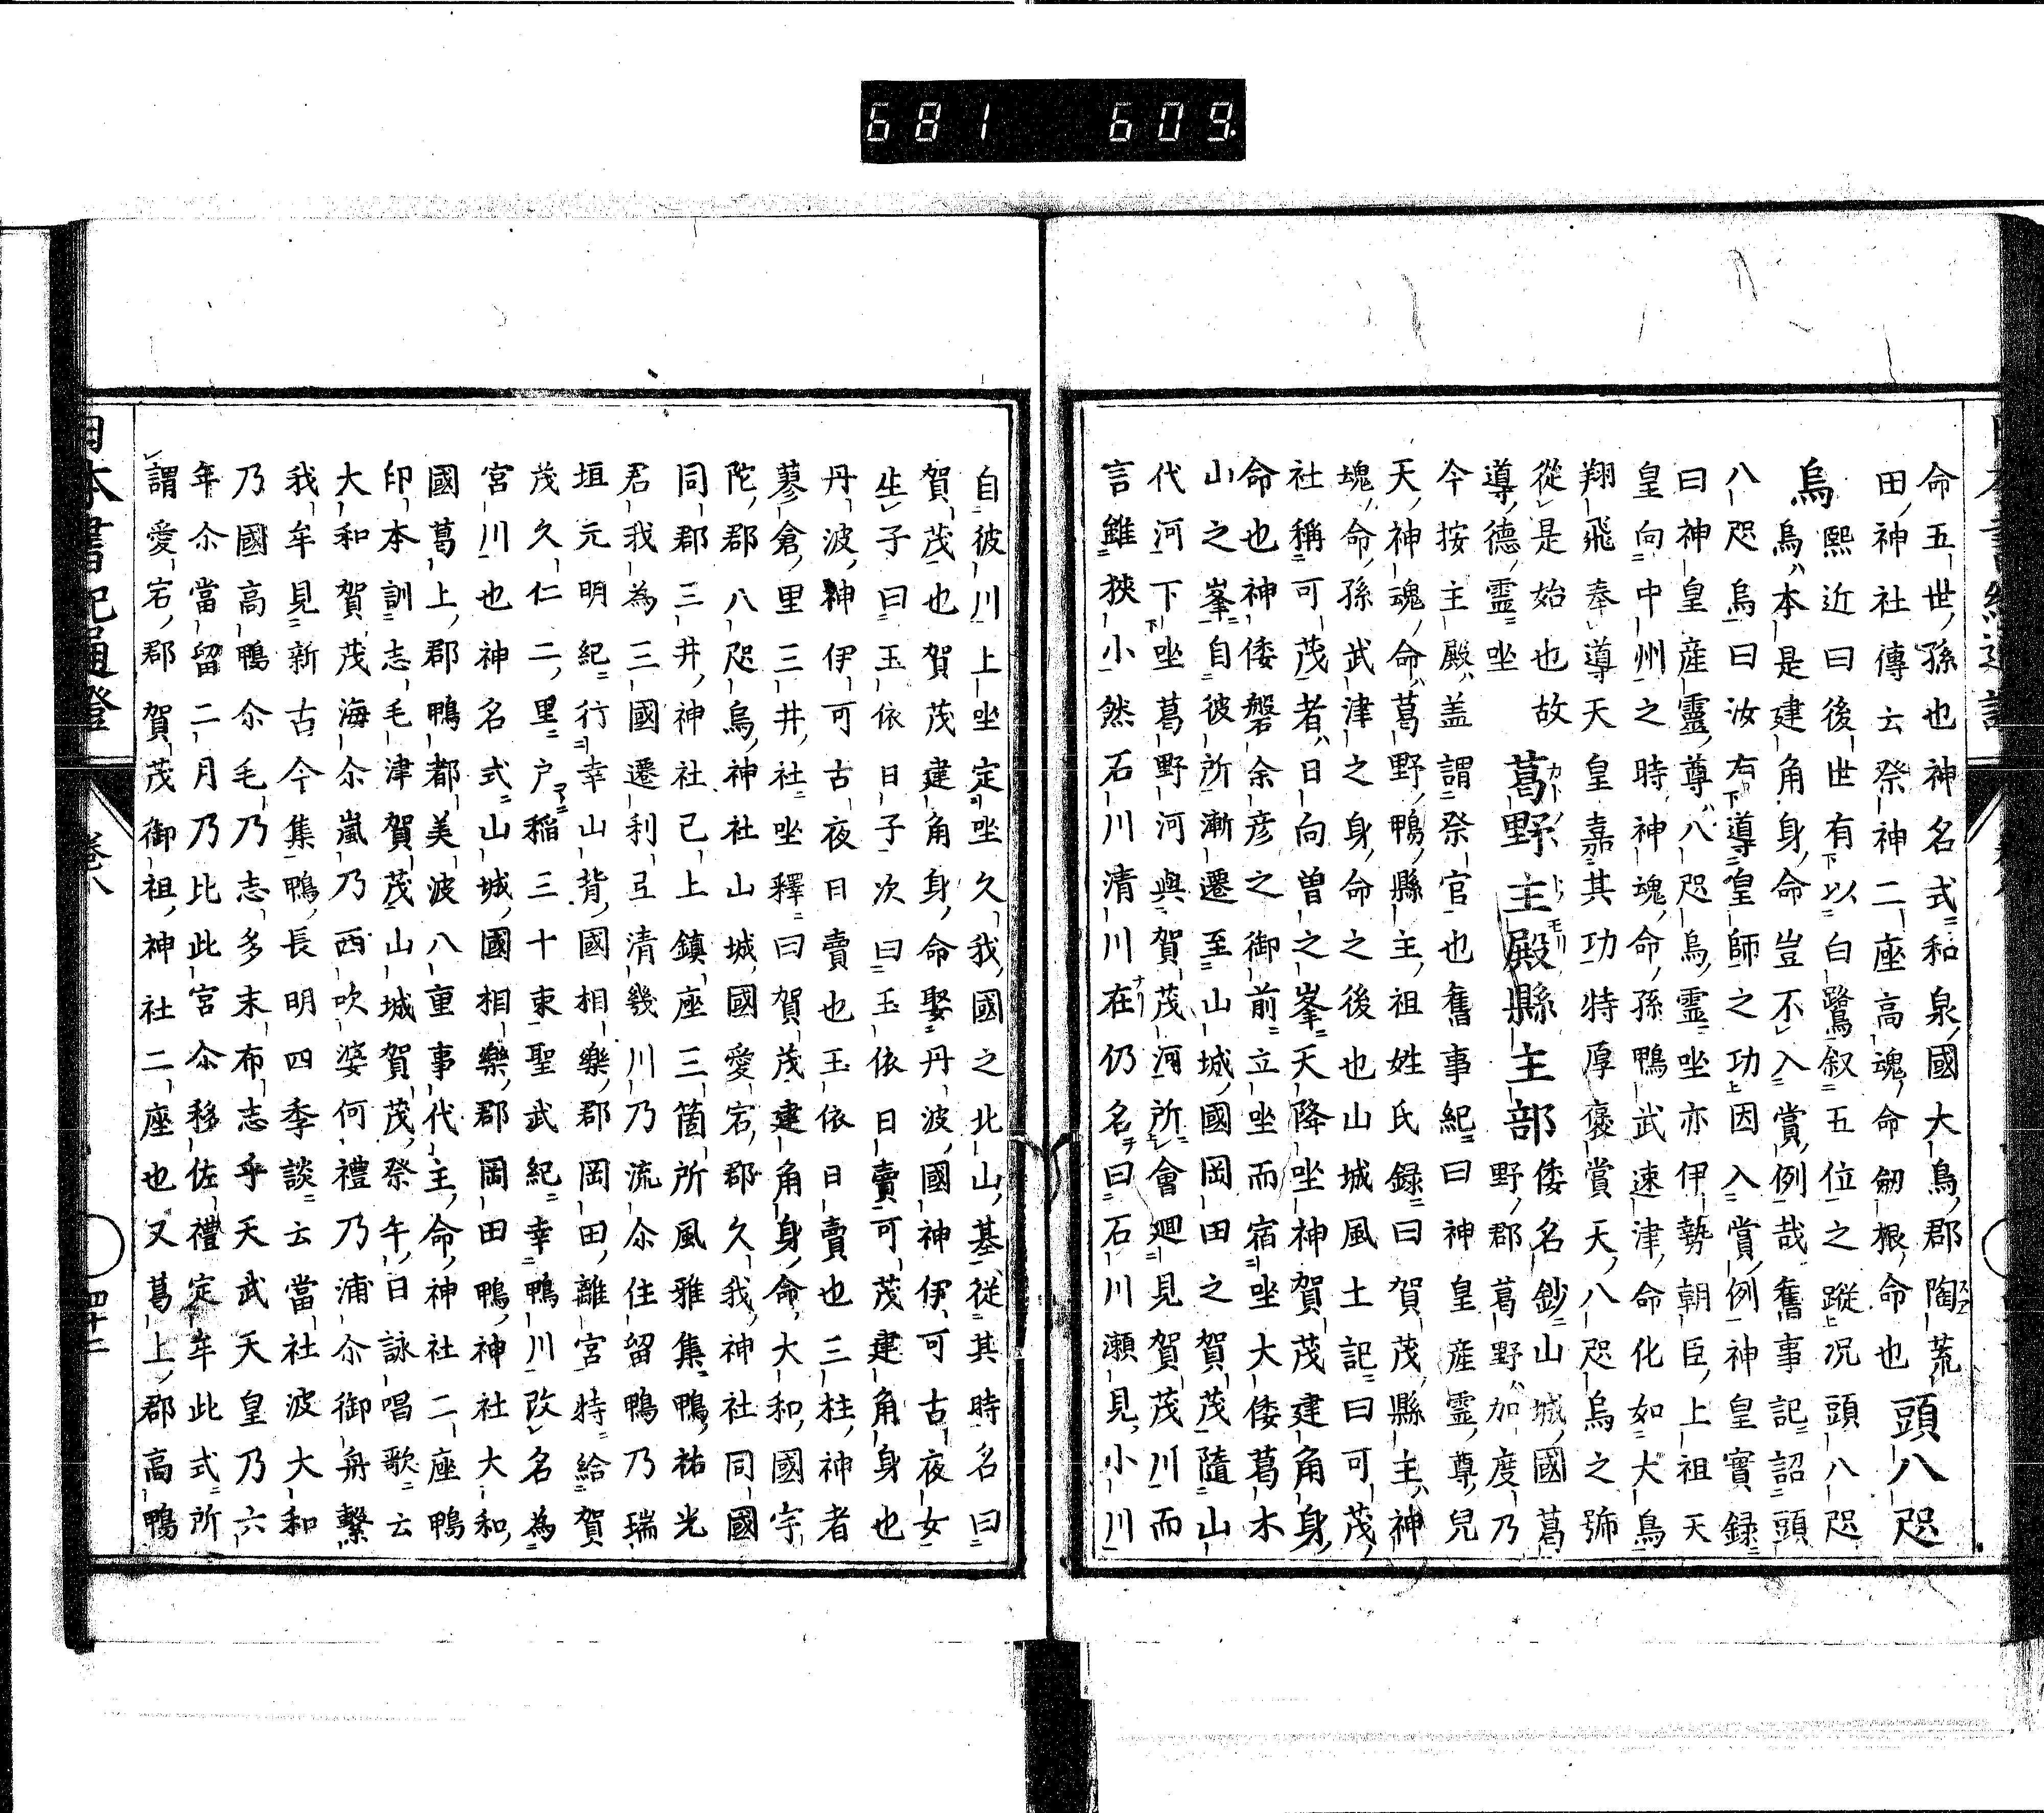 681 609
命五世孫也神名式和泉國大鳥郡陶荒
田神社傳云祭神二座高魂命劒根命也頭八咫
烏熙近曰後世有以白鷺叙五位之蹤況頭八咫
烏本是建角身命豈不入賞例哉舊事記詔頭
八咫烏曰汝有導皇師之功因入賞例神皇實録
曰神皇産靈尊八咫烏霊坐亦伊勢朝臣上祖天
皇向中州之時神魂命孫鴨武速津命化如大烏
翔飛奉導天皇嘉其功特厚褒賞天八咫烏之號
從是始也故葛野主殿縣主部倭名鈔山城國葛
導德靈坐野郡葛野加度乃
今按主殿盖謂祭官也舊事紀曰神皇産霊尊兒
天神魂命葛野鴨縣主祖姓氏録曰賀茂縣主神
魂命孫武津之身命之後也山城風土記曰可茂
社稱可茂者日向曽之峯天降坐神賀茂建角身
命也神倭磐余彦之御前立坐而宿坐大倭葛木
山之峯自彼所漸遷至山城國岡田之賀茂隨山
代河下坐葛野河與賀茂河所會廻見賀茂川而
言雖狹小然石川清川在仍名曰石川瀬見小川
自彼川上坐定坐久我國之北山基從其時名曰
賀茂也賀茂建角身命娶丹波國神伊可古夜女
生子曰玉依日子次曰玉依日賣可茂建角身也
丹波神伊可古夜日賣也玉依日賣也三柱神者
蓼倉里三井社坐釋曰賀茂建角身命大和國宇
陀郡八咫烏神社山城國愛宕郡久我神社同國
同郡三井神社已上鎮座三箇所風雅集鴨祐光
君我為三國遷利弖清幾川乃流尒住留鴨乃瑞
垣元明紀行幸山背國相樂郡岡田離宮特給賀
茂久仁二里戸稲三十束聖武紀幸鴨川改名為
宮川也神名式山城國相樂郡岡田鴨神社大和
國葛上郡鴨都美波八重事代主命神社二座鴨
印本訓志毛津賀茂山城賀茂祭午日詠唱歌云
大和賀茂海尒嵐乃西吹婆何禮乃浦尒御舟繋
我牟見新古今集鴨長明四季談云當社波大和
乃國高鴨尒毛乃志多末布志乎天武天皇乃六
年尒當留二月乃比此宮尒移佐禮定牟此式所
謂愛宕郡賀茂御祖神社二座也又葛上郡高鴨
日本書紀通證
卷八
四十二